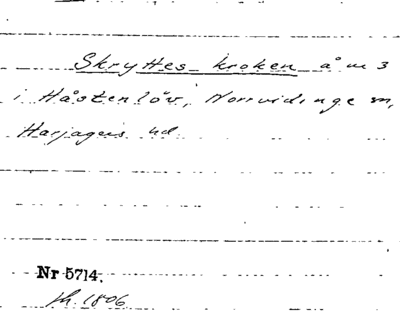 Skryttes kroken å n:o 3
i Håstenlöv, Norrvidinge sn,
Harjagers hd
Nr 5714.
sk. 1806